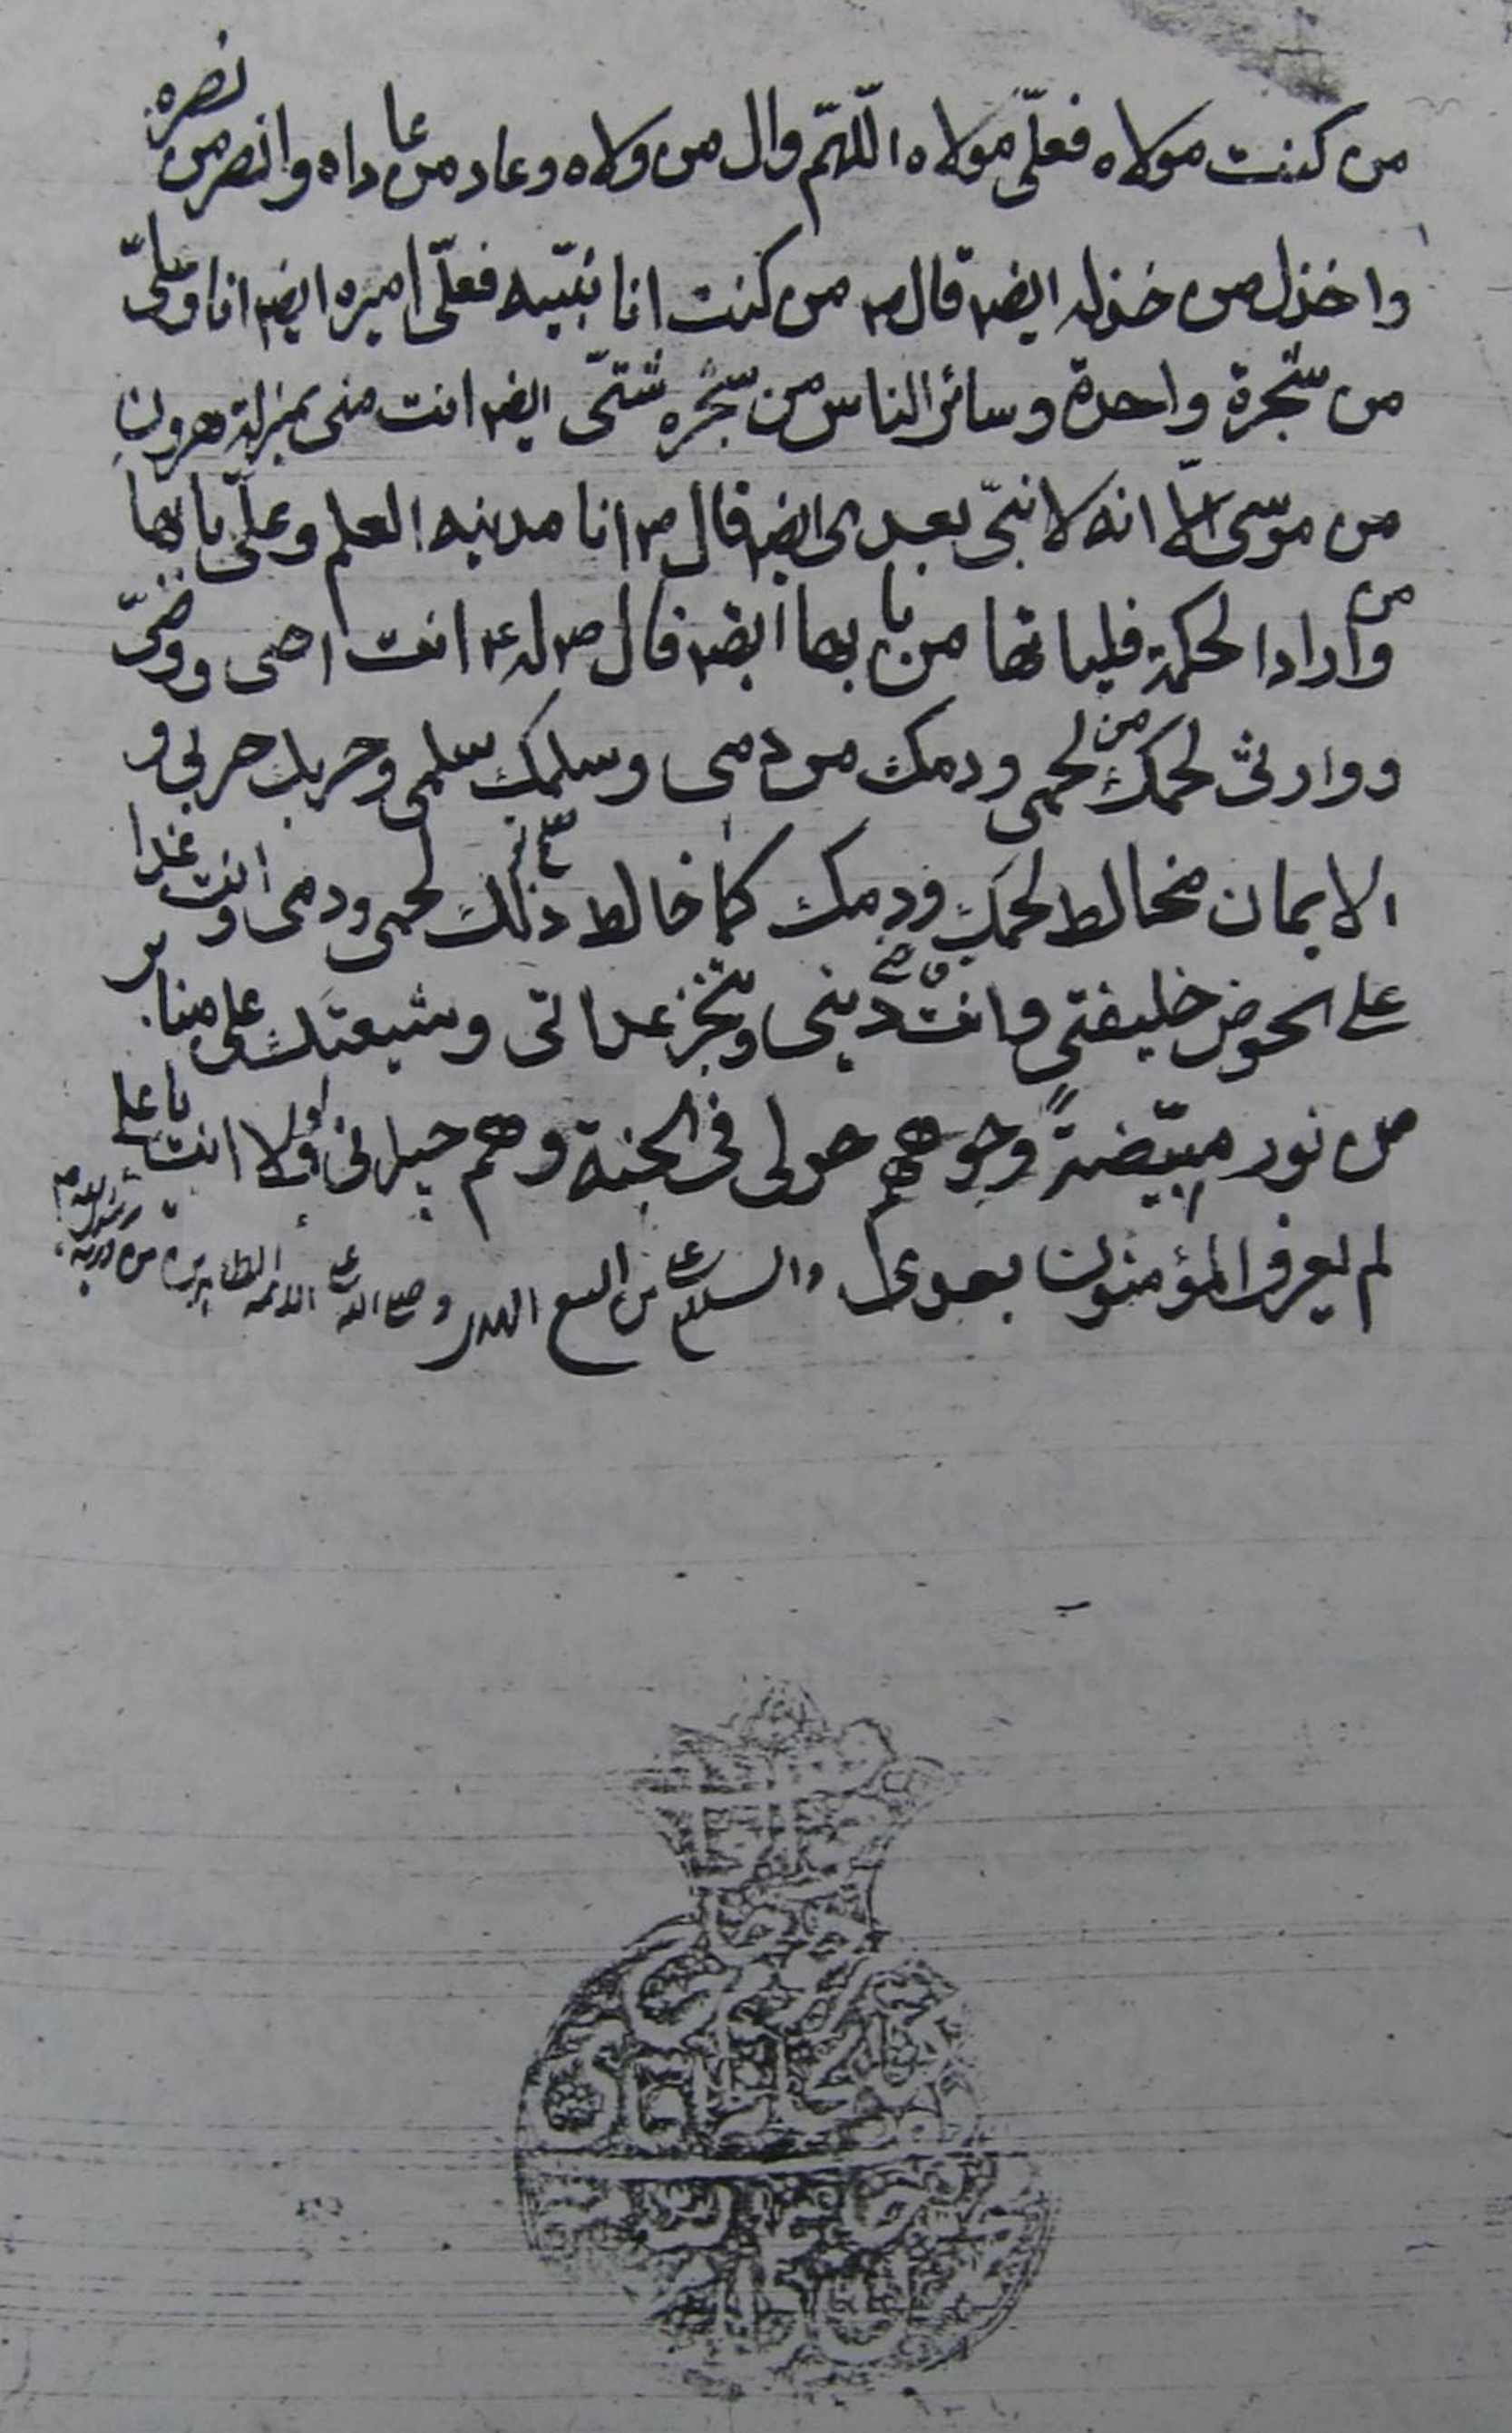 من كنت مولاه فعلّی مولاه اللّهمّ وال من ولاه وعاد من عاداه وانصر من نصره
واخذل من خذله ایضا قال ص من كنت انا نبّیه فعلّی امیره ایضا انا وعلیّ
من شجرة واحدة وسائر الناس من شجره شتّی ایضا انت منی بمنزلة هرون
من موسی الّا انه لا نبیّ بعدی ایضا قال ص انا مدینه العلم وعلیّ بابها
ومن اراد الحكمة فلیاتها من بابها ایضا قال ص له ع انت اخی ووصیّ
ووارثی لحمك من لحمی ودمك من دمی وسلمك سلمی وحربك حربی و
الایمان مخالط لحمك ودمك كما خالط ذلك لحمی ودمی وانت غدا
علی الحوض خلیفتی وانت دینی وتنجز عداتی وشیعتك علی منابر
من نور مبیّضةً وجوههم حولی فی الجنة وهم جیرانی ولولا انت یا علی
لم یعرف المؤمنون بعدی والسلام علی من اتبع الهدی وصلی الله علی الائمه الطاهرین من ذریه رسول الله ص